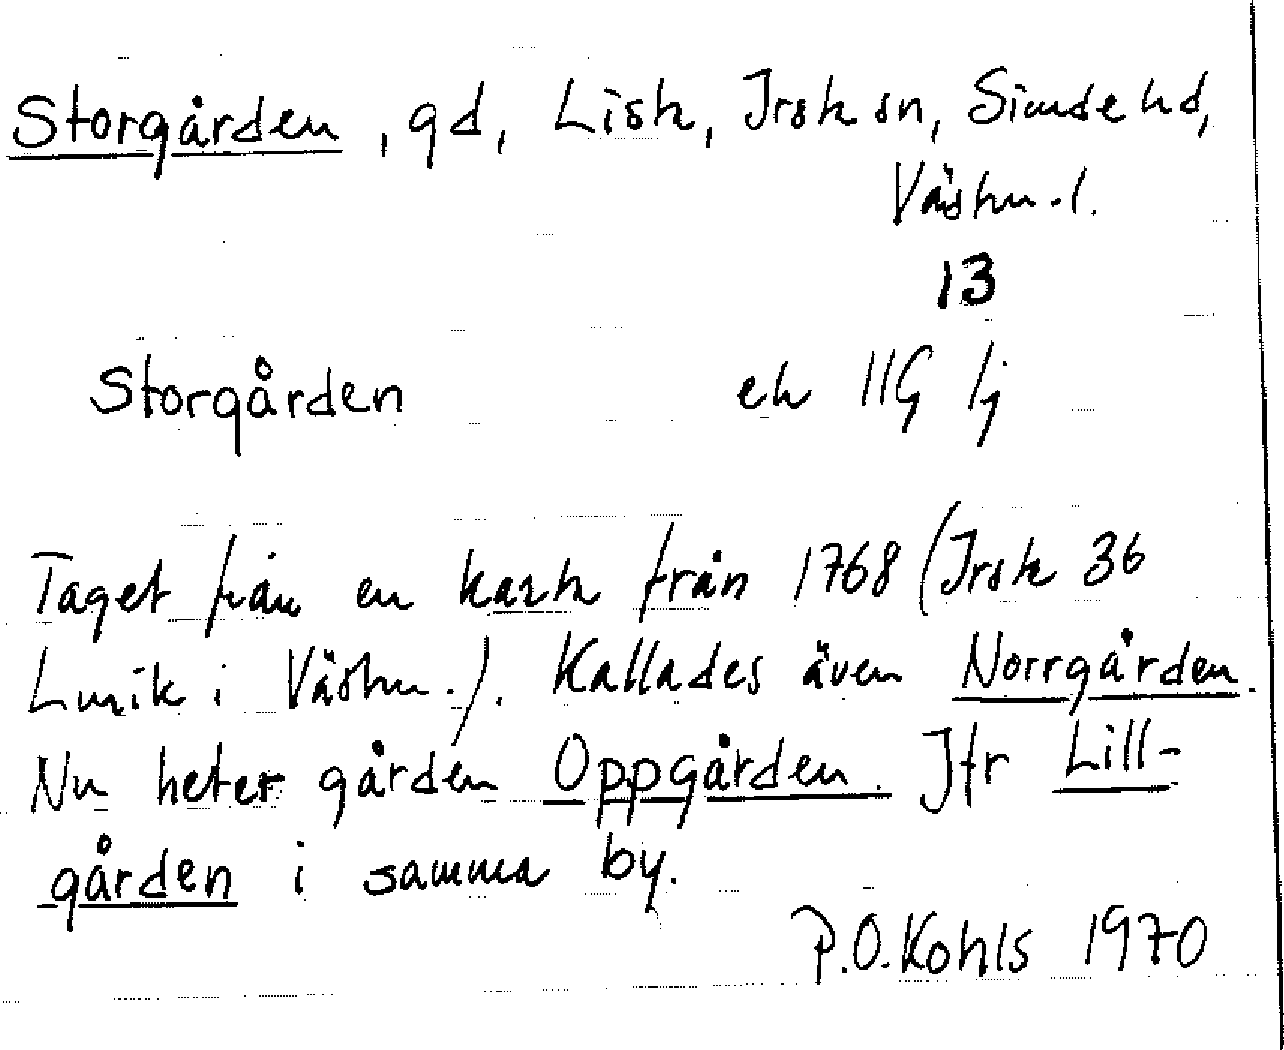 Storgården, gd, Lista, Irsta sn, Simde hd,
Västm. l.
13
Storgården ek 11G 1j
Taget från en karta från 1768 (Irsta 36
Lmrk i Västm.). Kallades även Norrgården.
Nu heter gården Oppgården. Jfr Lill-
gården i samma by.
P.O. Kohls 1970